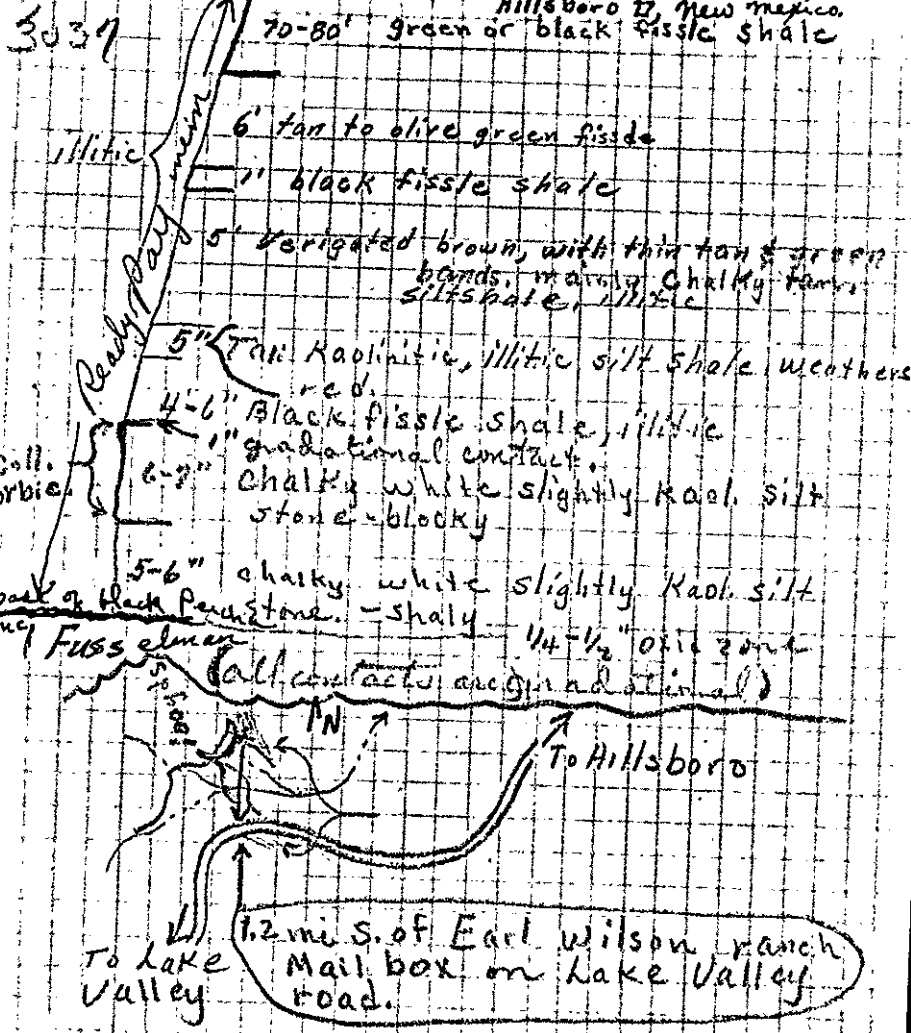 Hillsboro 17, New Mexico.
5037
70-80' green or black fissle shale
6' tan to olive green fissle
illitic
1' black fissle shale
Ready Pay mem
5' Verigated brown, with thin tan & green
bands, mainly Chalky tan,
siltshale, illitic
5" Tan Kaolinitic, illitic silt shale weathers
red.
4-6" Black fissle shale, illitic
1" gradational contact.
Coll.
6-8" Chalky white slightly Kaol. silt
stone-blocky
5-6" chalky white slightly Kaol. silt
stone. - shaly
of black
Fusselman
1/4-1/2" zone
(all contacts are gradational)
N
To Hillsboro
To Lake
Valley
1.2 mi S. of Earl Wilson ranch
Mail box on Lake Valley
road.